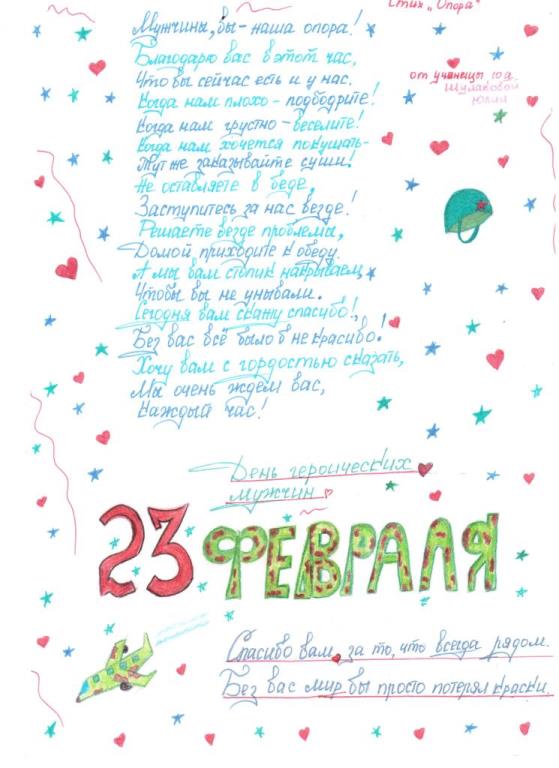 Стих „Опора"
Мужчины, вы - наша опора!
Благодарю вас в этот час,
Что вы сейчас есть и у нас.
от ученицы 10а
Шулаковой
Юлии
Когда нам плохо - подбодрите!
Когда нам грустно - веселите!
Когда нам хочется покушать -
Тут же заказывайте суши!
Не оставляете в беде,
Заступитесь за нас везде!
Решаете везде проблемы,
Домой приходите к обеду.
А мы вам столик накрываем,
Чтобы вы не унывали.
Сегодня вам скажу спасибо!,
Без вас всё было б не красиво!
Хочу вам с гордостью сказать,
Мы очень ждём вас,
Каждый час!
День героических
мужчин
23 ФЕВРАЛЯ
Спасибо вам, за то, что всегда рядом.
Без вас мир бы просто потерял краски.